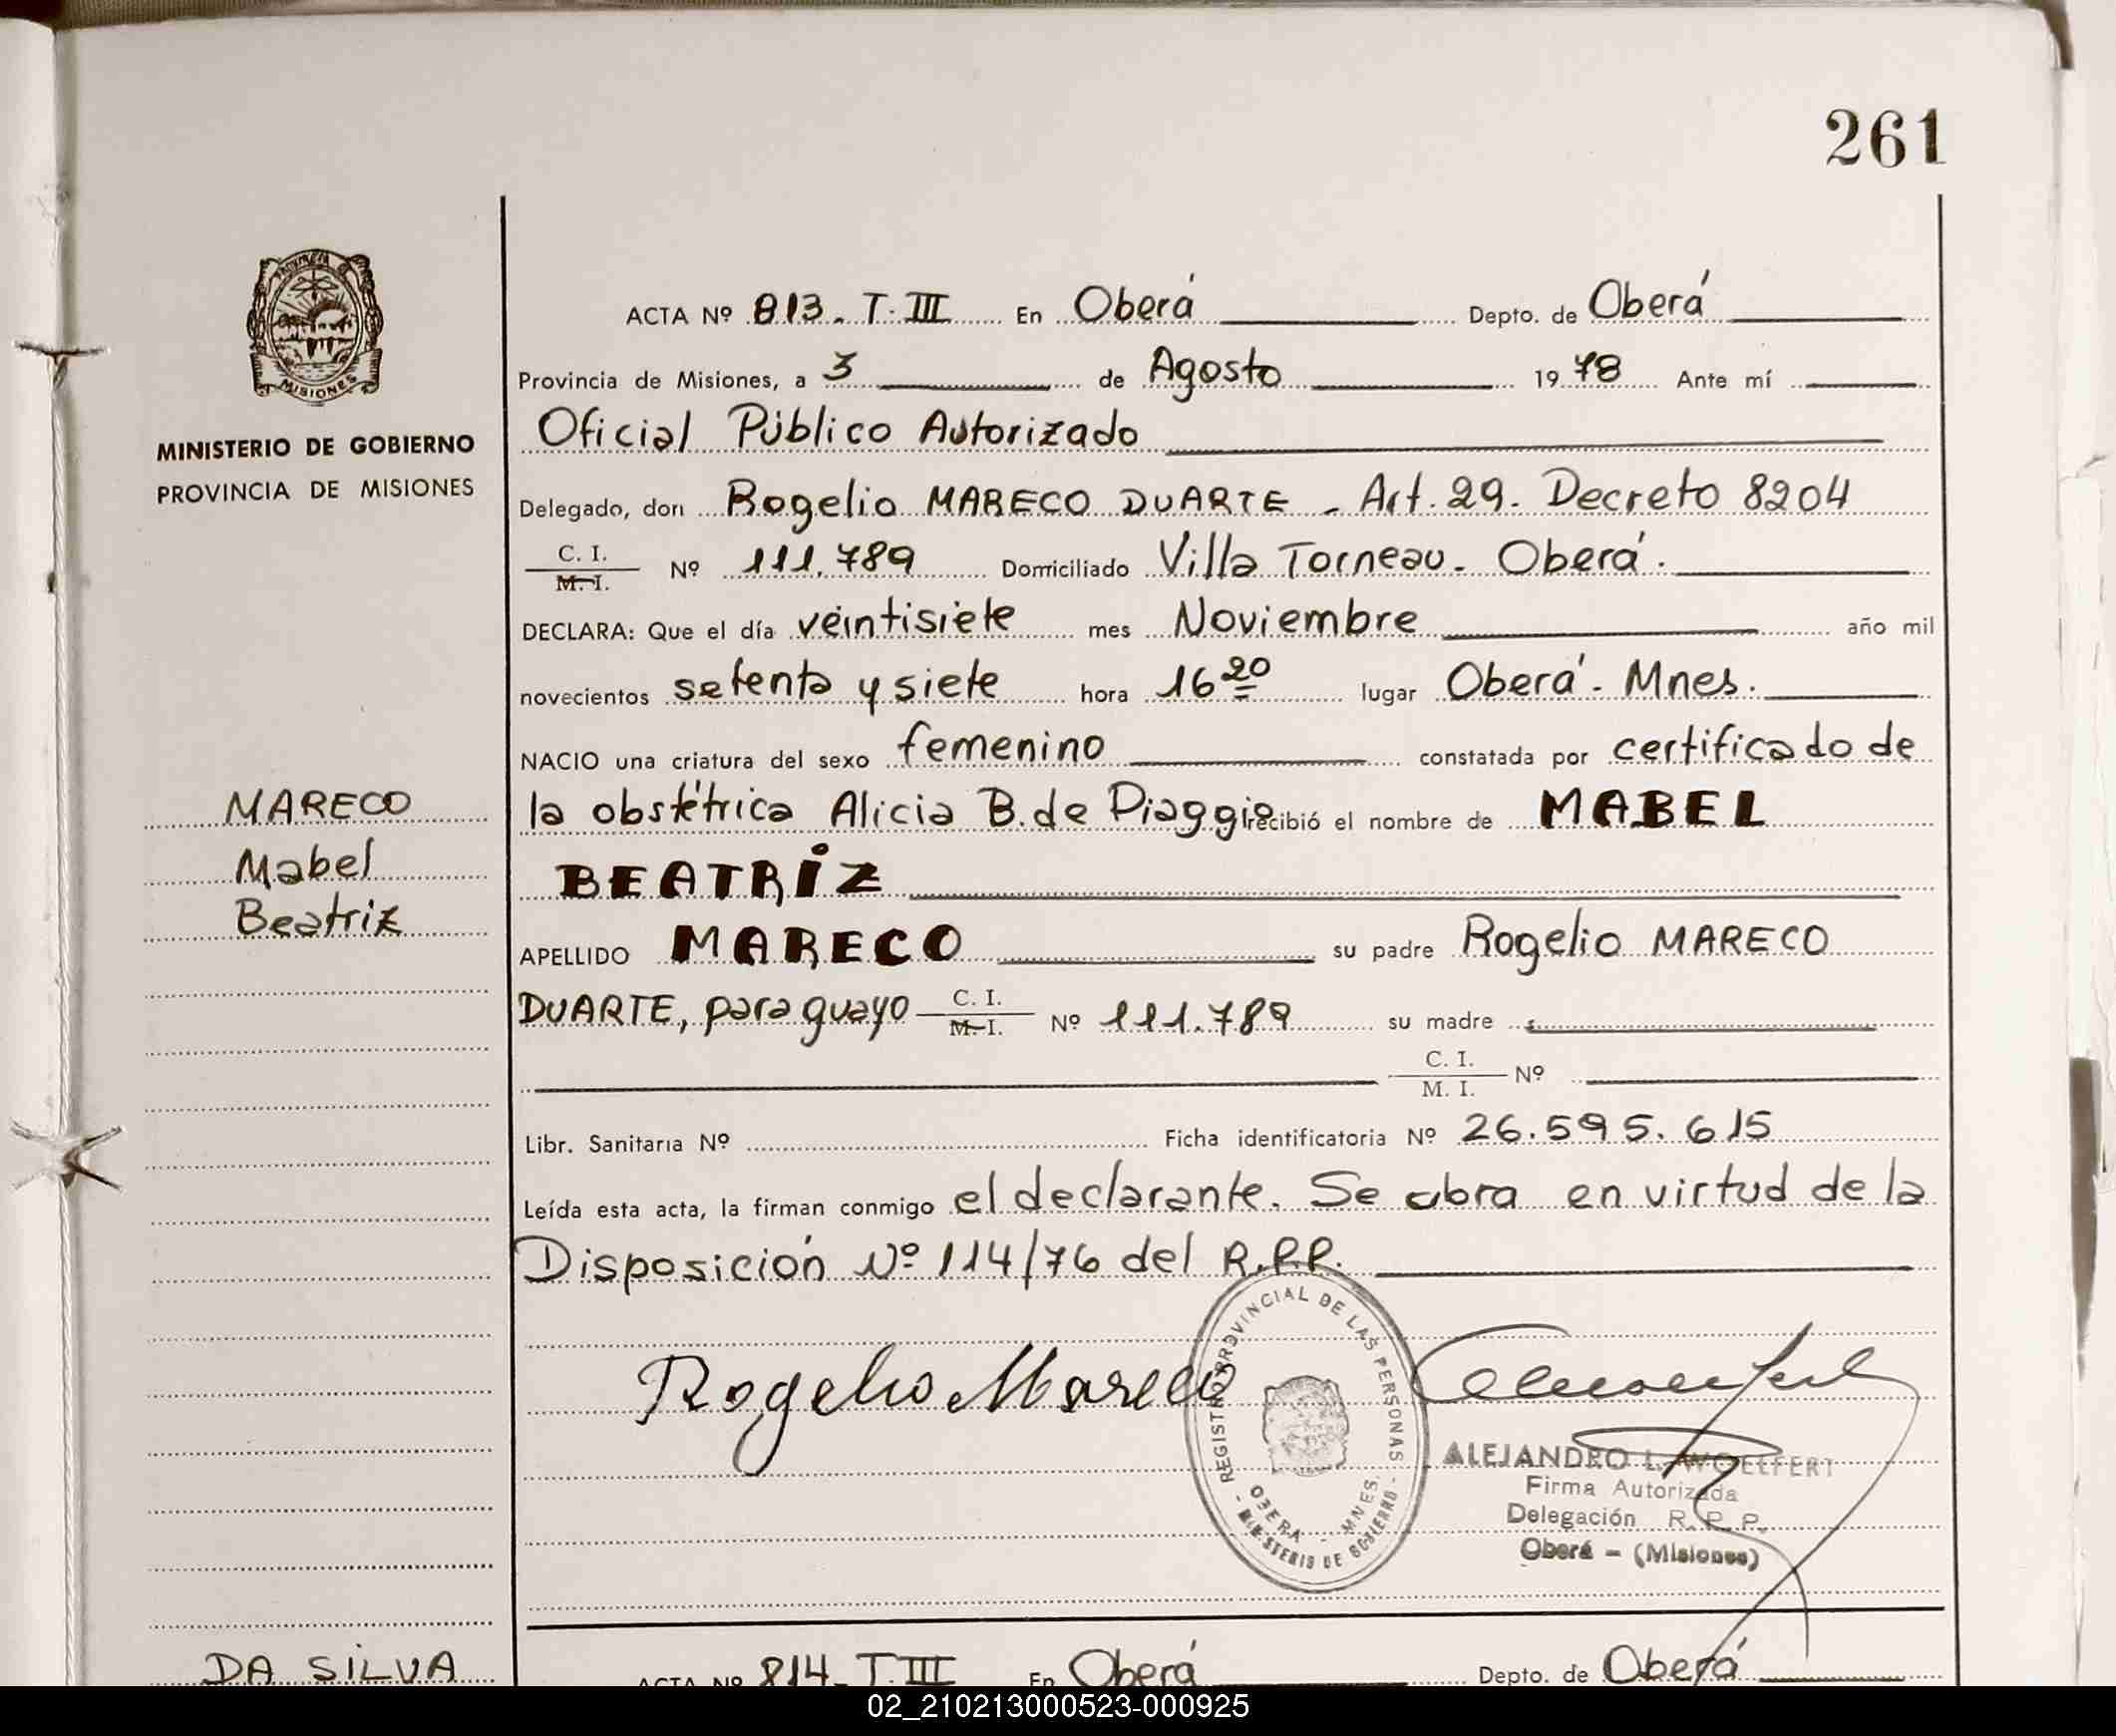 261
PROVINCIA DE
MISIONES
MINISTERIO DE GOBIERNO
PROVINCIA DE MISIONES
MARECO
Mabel
Beatriz
ACTA Nº 813. T. III En Oberá Depto. de Oberá
Provincia de Misiones, a 3 de Agosto 19 78 Ante mí
Oficial Público Autorizado
Delegado, don Rogelio MARECO DUARTE - Art. 29. Decreto 8204
C. I.
M. I. Nº 111.789 Domiciliado Villa Torneau - Oberá.
DECLARA: Que el día veintisiete mes Noviembre año mil
novecientos setenta y siete hora 16 20 lugar Oberá - Mnes.
NACIO una criatura del sexo femenino constatada por certificado de
la obstétrica Alicia B. de Piaggio recibió el nombre de MABEL
BEATRIZ
APELLIDO MARECO su padre Rogelio MARECO
DUARTE, paraguayo C. I.
M. I. Nº 111.789 su madre
C. I.
M. I. Nº
Libr. Sanitaria Nº Ficha identificatoria Nº 26.595.615
Leída esta acta, la firman conmigo el declarante. Se labra en virtud de la
Disposición Nº 114/76 del R.P.P.
Rogelio Mareco
REGISTRO PROVINCIAL DE LAS PERSONAS
OBERA - MNES.
- MINISTERIO DE GOBIERNO -
ALEJANDRO L. WOELFERT
Firma Autorizada
Delegación R. P. P.
Oberá - (Misiones)
DA SILVA
ACTA Nº 814 T III En Oberá Depto. de Oberá
02_210213000523-000925